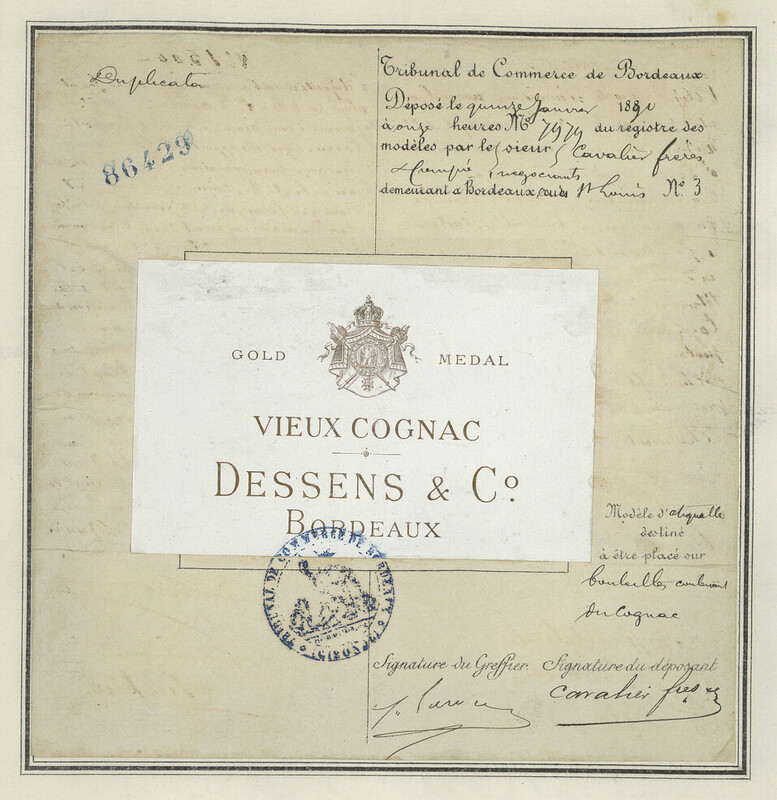 Duplicata
86429
Tribunal de Commerce de Bordeaux
Déposé le quinze Janvier 1890
à onze heures No 7979 du registre des
modèles par le sieur Cavalier frères
négociants
demeurant à Bordeaux, cours St Louis No 3
GOLD MEDAL
VIEUX COGNAC
DESSENS & Co.
BORDEAUX
TRIBUNAL DE COMMERCE DE BORDEAUX
Modèle d'étiquette
destiné
à être placé sur
bouteilles contenant
du Cognac
Signature du Greffier. Signature du déposant
Cavalier frères